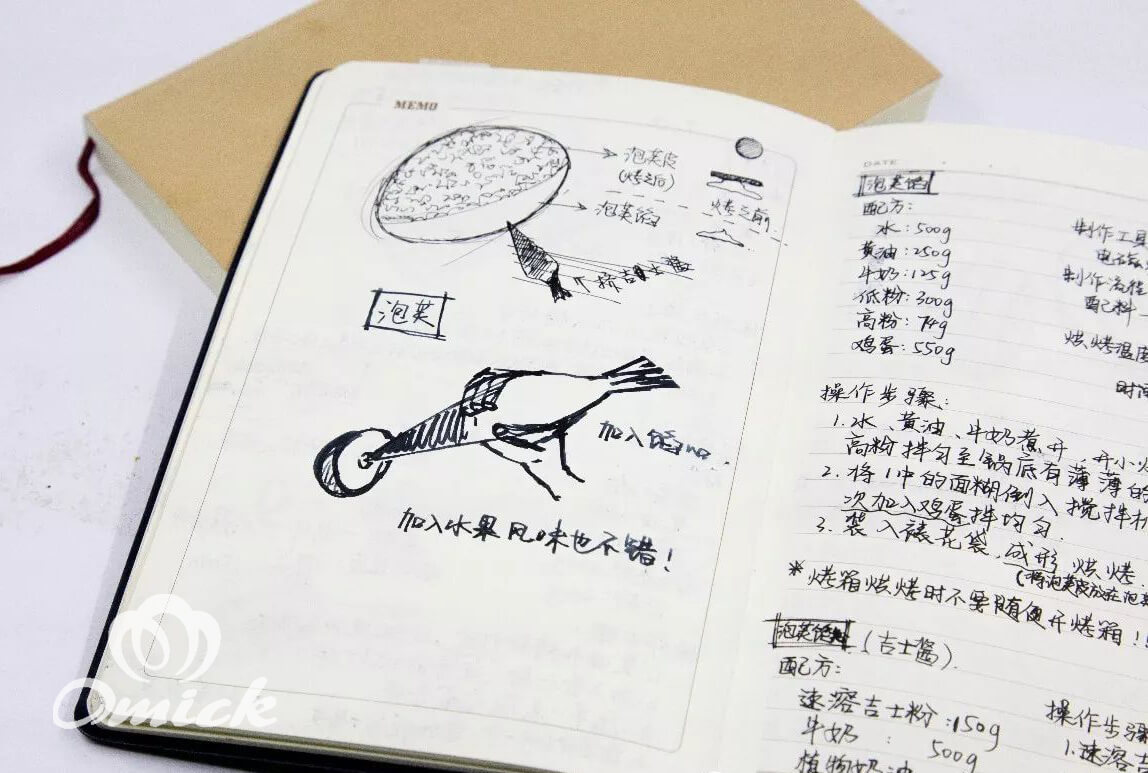 MEMO
泡芙皮
(烤之后)
烤之前
泡芙馅
挤吉士酱
泡芙
加入馅
加入水果风味也不错!
DATE
泡芙馅
配方:
水:500g
黄油:250g
牛奶:125g
低粉:300g
高粉:74g
鸡蛋:550g
制作工具
制作流程
配料一
烘烤温度
时间
操作步骤:
1.水、黄油、牛奶煮开,开小火
高粉拌匀至锅底有薄薄的
2.将1中的面糊倒入搅拌机
次加入鸡蛋拌均匀.
3.装入裱花袋.成形烘烤.
(将泡芙皮放在泡芙
*烤箱烘烤时不要随便开烤箱!!
泡芙馅料(吉士酱).
配方:
速溶吉士粉:150g
牛奶: 500g
植物奶油
操作步骤
1.速溶吉
Omick